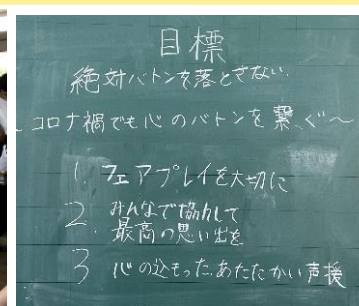 目標
絶対バトンを落とさない
~コロナ禍でも心のバトンを繋ぐ~
1. フェアプレイを大切に
2. みんなで協力して
最高の思い出を
3 心の込もったあたたかい声援